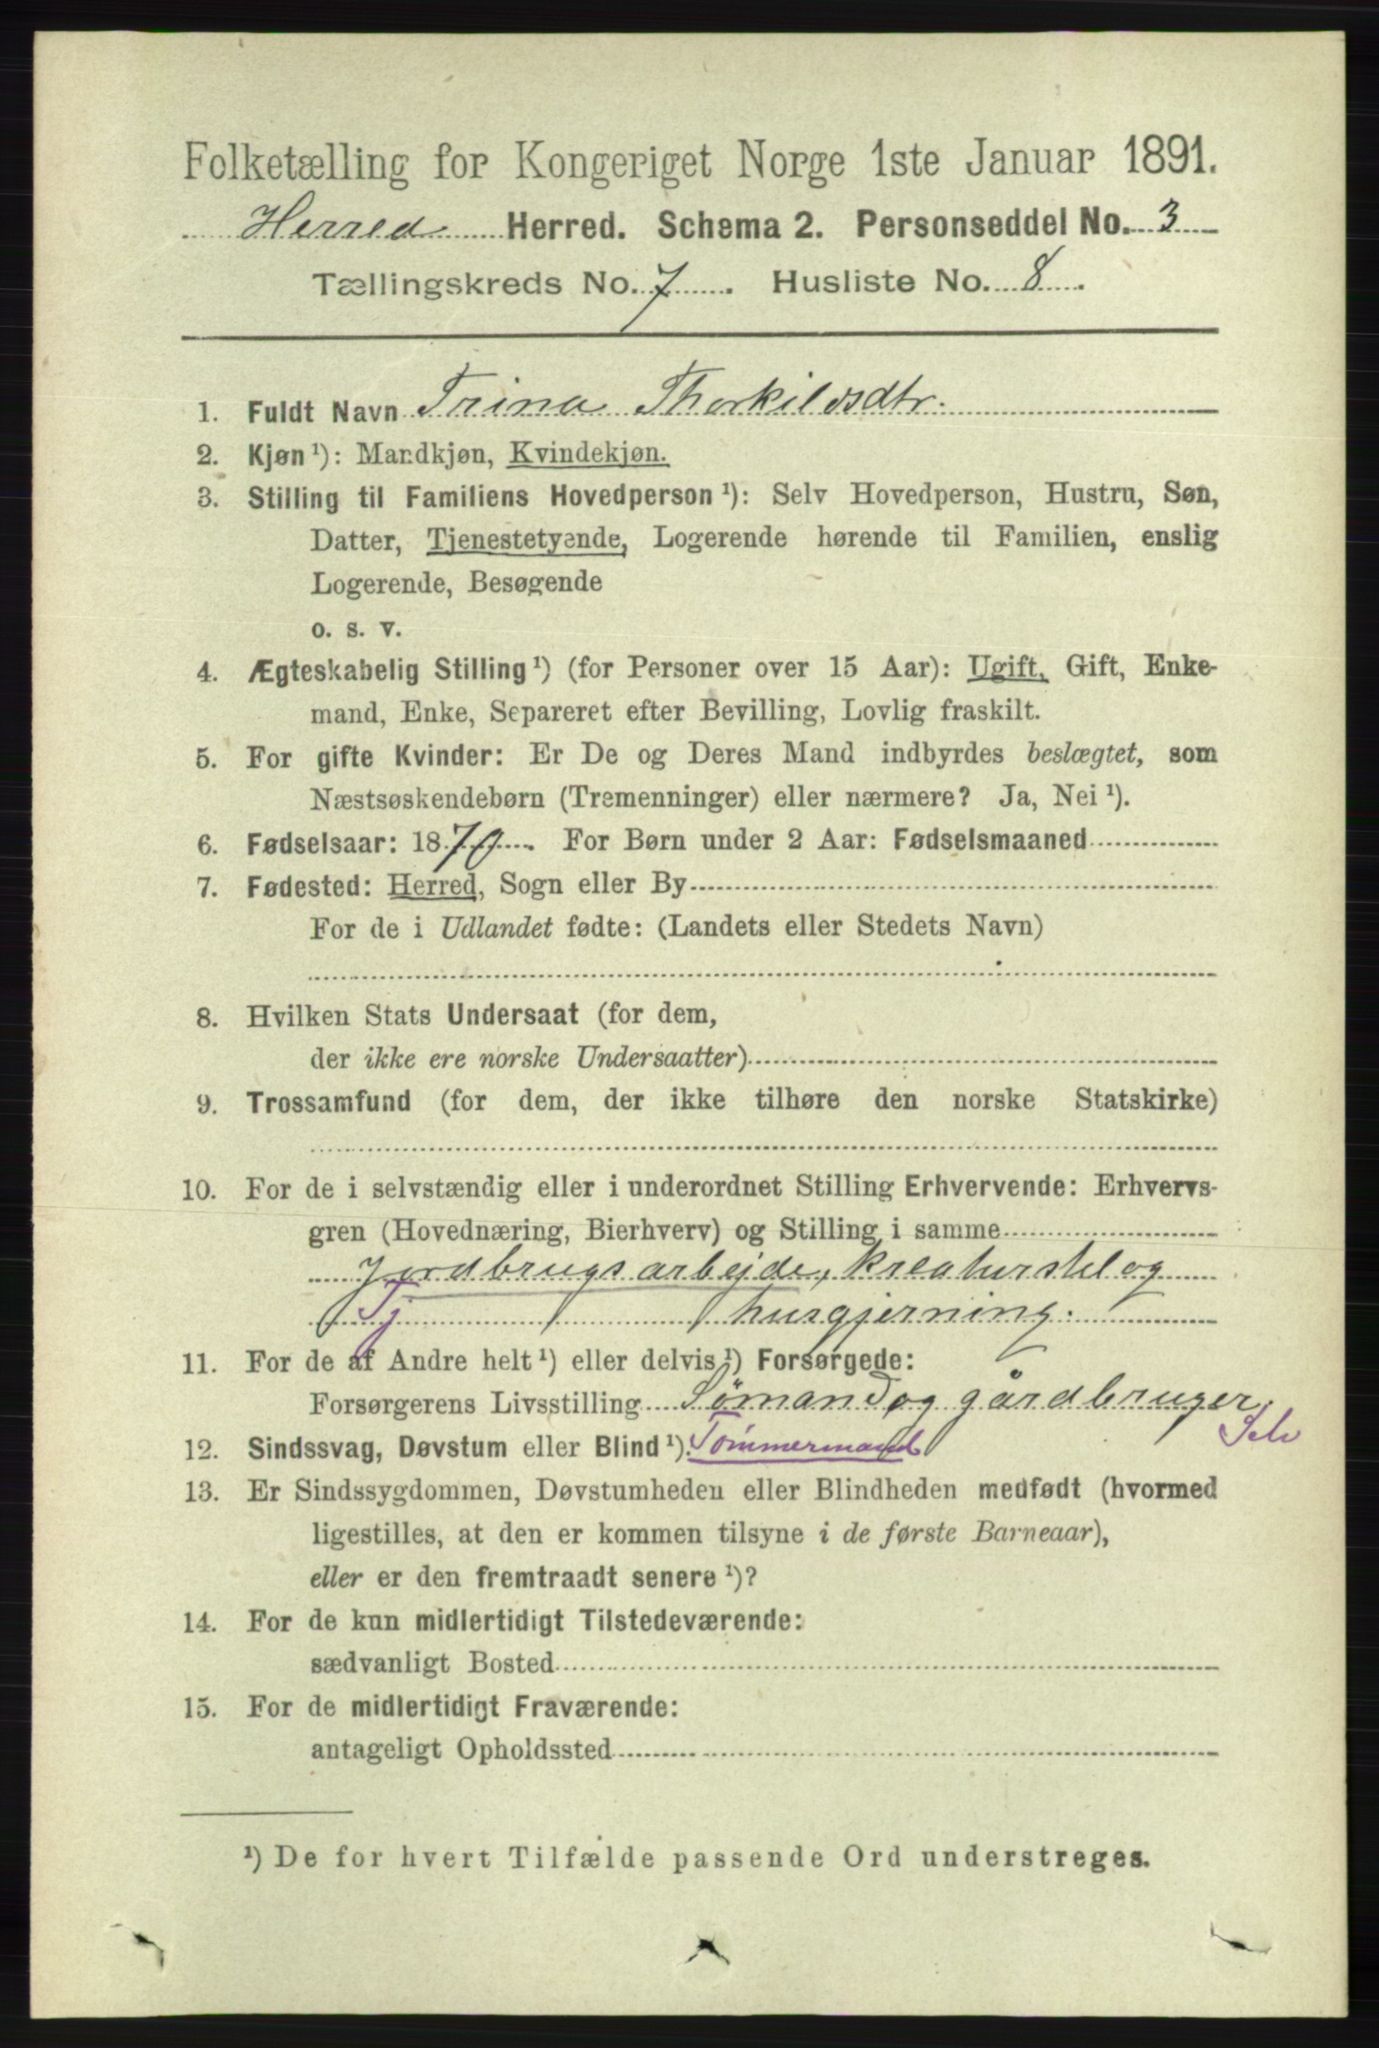 Folketælling for Kongeriget Norge 1ste Januar 1891.
Herred Herred. Schema 2. Personseddel No. 3
Tællingskreds No. 7. Husliste No. 8.
1. Fuldt Navn Trina Thorkildsdtr.
2. Kjøn ¹): Mandkjøn, Kvindekjøn.
3. Stilling til Familiens Hovedperson ¹): Selv Hovedperson, Hustru, Søn,
Datter, Tjenestetyende, Logerende hørende til Familien, enslig
Logerende, Besøgende
o. s. v.
4. Ægteskabelig Stilling ¹) (for Personer over 15 Aar): Ugift, Gift, Enke-
mand, Enke, Separeret efter Bevilling, Lovlig fraskilt.
5. For gifte Kvinder: Er De og Deres Mand indbyrdes beslægtet, som
Næstsøskendebørn (Tremenninger) eller nærmere? Ja, Nei ¹).
6. Fødselsaar: 1870. For Børn under 2 Aar: Fødselsmaaned
7. Fødested: Herred, Sogn eller By
For de i Udlandet fødte: (Landets eller Stedets Navn)
8. Hvilken Stats Undersaat (for dem,
der ikke ere norske Undersaatter)
9. Trossamfund (for dem, der ikke tilhøre den norske Statskirke)
10. For de i selvstændig eller i underordnet Stilling Erhvervende: Erhvervs-
gren (Hovednæring, Bierhverv) og Stilling i samme
Jordbrugsarbejde, kreaturstel og
Tj husgjerning.
11. For de af Andre helt ¹) eller delvis ¹) Forsørgede:
Forsørgerens Livsstilling Sömand og gårdbruger
Selv
12. Sindssvag, Døvstum eller Blind ¹). Tömmermand
13. Er Sindssygdommen, Døvstumheden eller Blindheden medfødt (hvormed
ligestilles, at den er kommen tilsyne i de første Barneaar),
eller er den fremtraadt senere ¹)?
14. For de kun midlertidigt Tilstedeværende:
sædvanligt Bosted
15. For de midlertidigt Fraværende:
antageligt Opholdssted
¹) De for hvert Tilfælde passende Ord understreges.